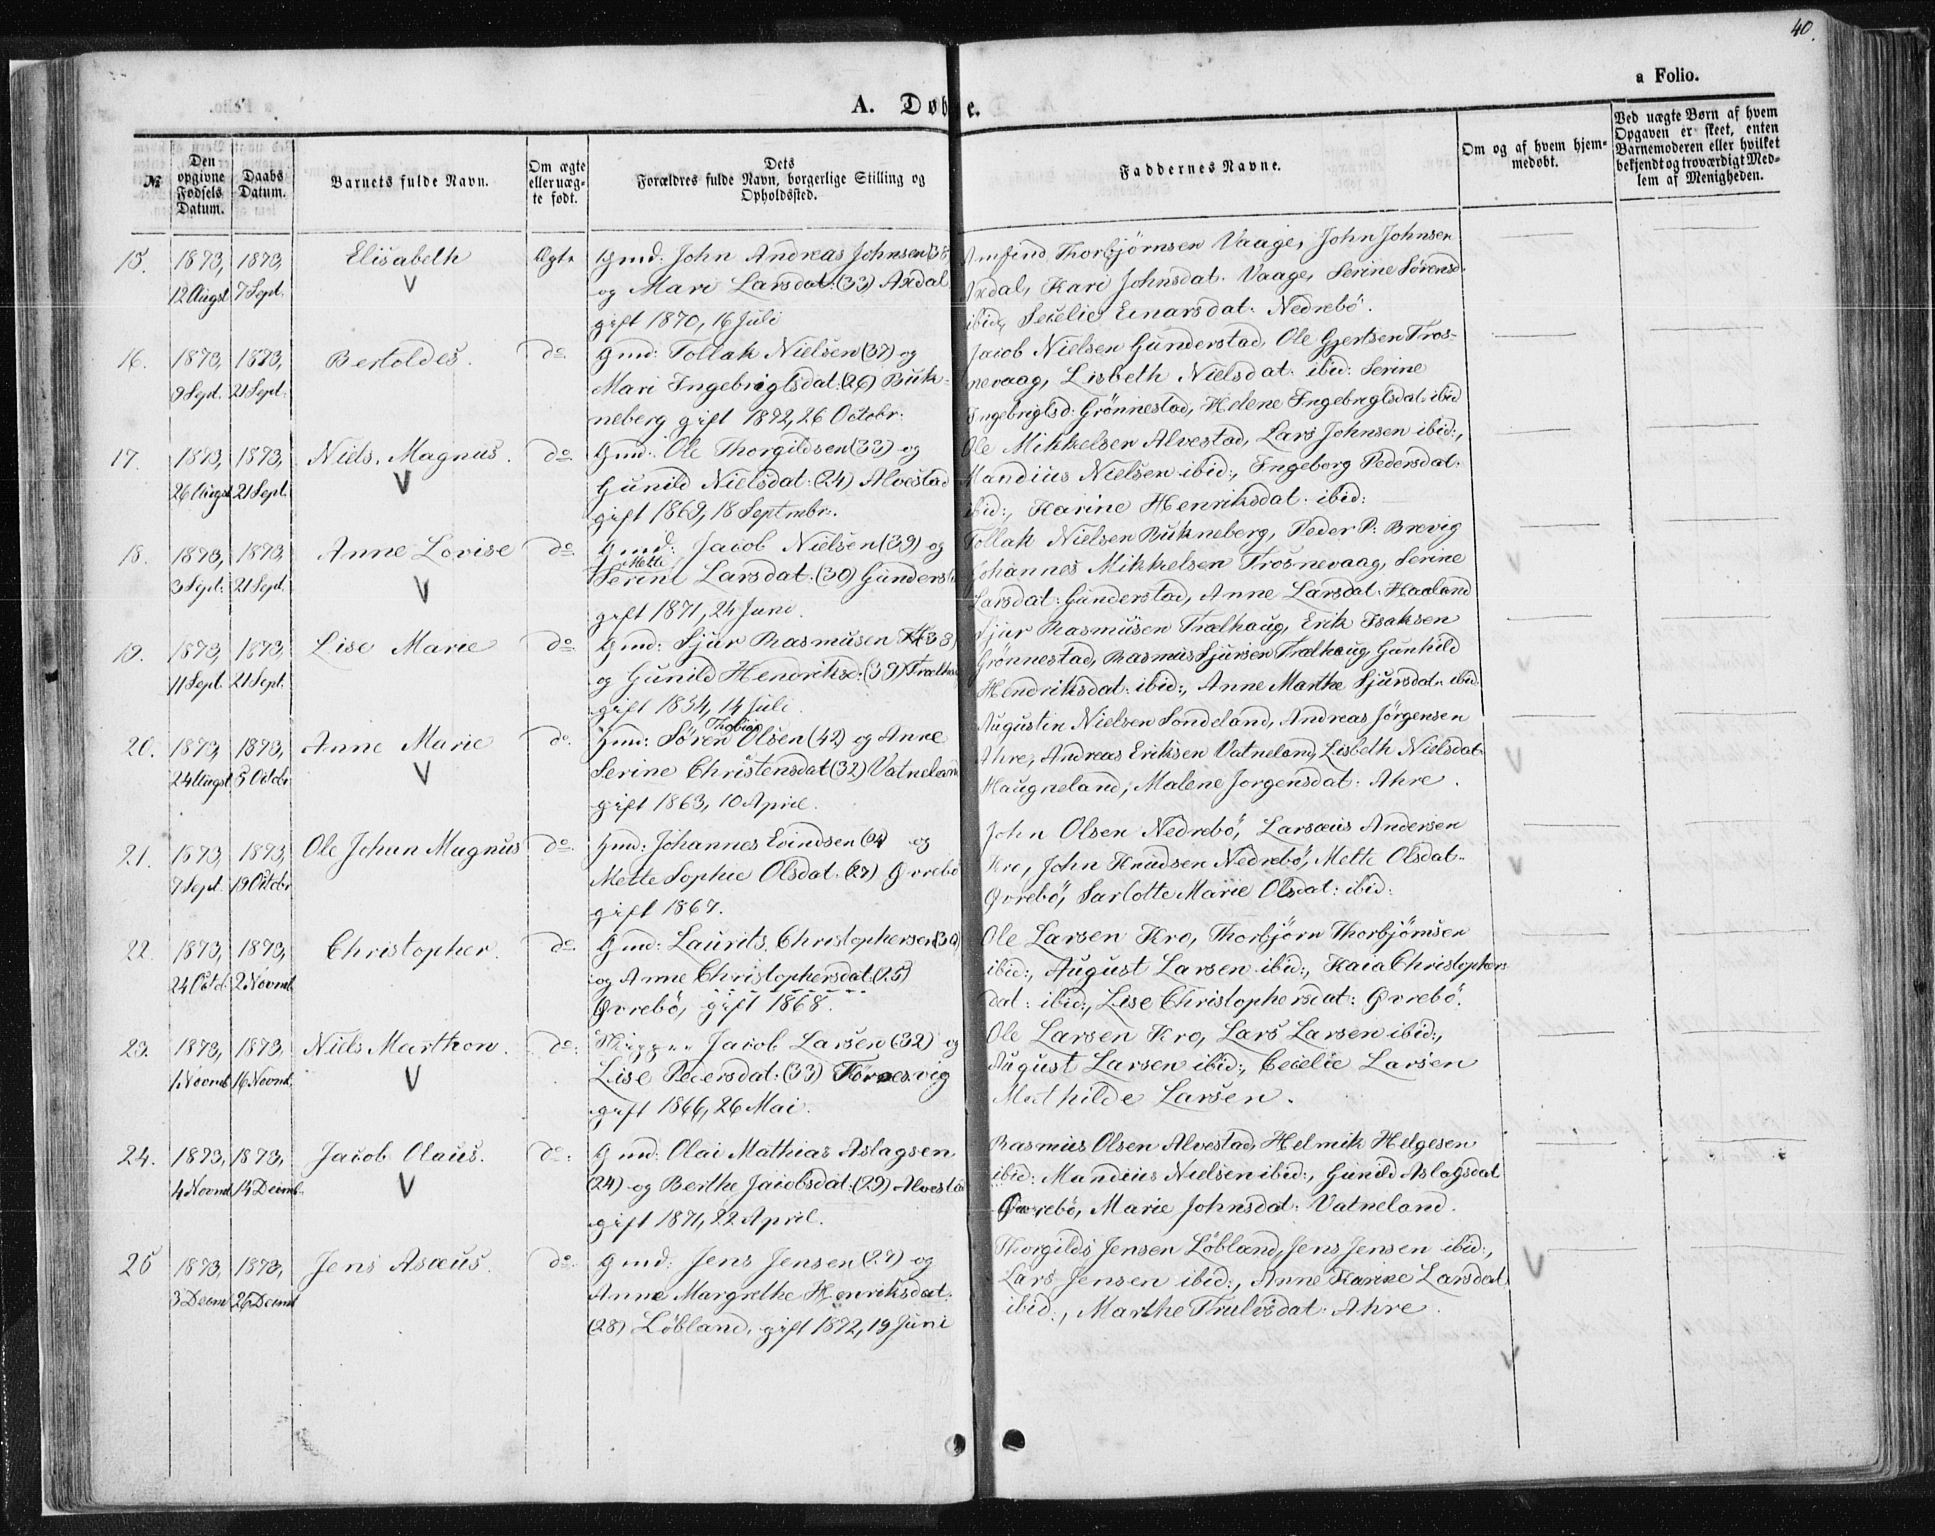 40.
a Folio.
A. Døbte.
№
Den opgivne Fødsels Datum.
Daabs Datum.
Barnets fulde Navn.
Om ægte eller uægte født.
Dets Forældres fulde Navn, borgerlige Stilling og Opholdssted.
Faddernes Navne.
Om og af hvem hjemmedøbt.
Ved uægte Børn af hvem Opgaven er skeet, enten Barnemoderen eller hvilket bekjendt og troværdigt Medlem af Menigheden.
15. 1873, 1873, Elisabeth Ægte Gmd: John Andreas Johnsen (38
12 Augst 7 Sept. og Mari Larsdat: (33) Axdal
gift 1870, 16 Juli
Amfind Thorbjørnsen Vaage, John Johnsen
Axdal, Kari Johnsdat. Vaage, Serine Sørensd.
ibid, Secelie Einarsdat. Nedrebö.
16. 1873, 1873, Bertoldes. do Gmd: Tollak Nielsen (37) og
9 Sept. 21 Sept. Mari Ingebrigtsdat: (26) Buk-
neberg gift 1872, 26 Octobr.
Jacob Nielsen Gunderstad, Ole Gjertsen Tros-
nevaag, Lisbeth Nielsdat. ibid: Serine
Ingebrigtsd: Grönnestad, Helene Ingebrigtsdat. ibid
17. 1873, 1873, Niels Magnus. do Gmd: Ole Thorgildsen (33) og
26 Augst 21 Sept. Gunild Nielsdat. (24) Alvestad
gift 1869, 18 Septmbr.
Ole Mikkelsen Alvestad, Lars Johnsen ibid:,
Mandius Nielsen ibid:, Ingeborg Pedersdat.
ibid:, Karine Henriksdat. ibid:
18. 1873, 1873, Anne Lovise do Gmd: Jacob Nielsen (39) og
Mette
3 Sept: 21 Sept. Serine Larsdat. (30) Gunderst
gift 1871, 24 Juni.
Tollak Nielsen Bukneberg, Peder P: Brevig
Johannes Mikkelsen Trosnevaag, Serine
Larsdat: Gunderstad, Anne Larsdat. Haaland
19. 1873, 1873, Lise Marie do Gmd: Sjur Rasmusen (38)
11 Sept. 21 Sept. og Gunild Hendriksd: (39) Trælha
gift 1854, 14 Juli.
Sjur Rasmusen Trælhaug, Erik Isaksen
Grönnestad, Rasmus Sjursen Trælhaug Gunhild
Hendriksdat. ibid:, Anne Marthe Sjursdat. ibid.
20. 1873, 1873, Anne Marie do. Gmd: Søren Thobias Olsen (42) og Anne
24 Augst 5 Octobr Serine Christensdat (32) Vatneland
gift 1863, 10 April.
Augustin Nielsen Sondeland, Andreas Jörgensen
Ahre, Andreas Eriksen Vatneland, Lisbeth Nielsdat.
Haugneland, Malene Jorgensdat. Ahre.
21. 1873, 1873, Ole Johan Magnus do. Gmd: Johannes Evindsen og
7 Sept. 19 Octobr Mette Sophie Olsdat. (27) Øvrebö
gift 1867.
John Olsen Nedrebö, Larsæus Andersen
Kro, John Knudsen Nedrebö, Mette Olsdat.
Øvrebö, Sarlotte Marie Olsdat: ibid:
22. 1873, 1873, Christopher. do Gmd: Laurits Christophersen (30)
24 Octob 2 Novmb. og Anne Christophersdat. (25)
Øvrebö, gift 1868.
Ole Larsen Kro, Thorbjörn Thorbjörnsen
ibid:, August Larsen ibid:, Kaia Christophers
dat: ibid:, Lise Christophersdat: Øvrebö.
23. 1873, 1873, Niels Marthon. do: Skipper Jacob Larsen (32) og
1 Novmb 16 Novmb. Lise Pedersdat. (33) Førresvig
gift 1866, 26 Mai.
Ole Larsen Kro, Lars Larsen ibid:,
August Larsen ibid:, Cecelie Larsen
Mathilde Larsen.
24. 1873, 1873, Jacob Olaus. do: Gmd: Olai Mathias Aslagsen
4 Novmb 14 Decmb. (24) og Berthe Jacobsdat. (29) Alvestad
gift 1871, 22 April.
Rasmus Olsen Alvestad, Helmik Helgesen
ibid: Mandius Nielsen ibid:, Gunild Aslagsdat
Øvrebö, Marie Johnsdat. Vatneland.
25 1873, 1873, Jens Asæus. do. Gmd: Jens Jensen (27) og
3 Decmb 26 Decmb Anne Margrethe Henriksdat.
(28) Løbland, gift 1872, 19 Juni
Thorgilds Jensen Løbland, Jens Jensen ibid:,
Lars Jensen ibid:, Anne Karine Larsdat.
ibid:, Marthe Thulesdat. Ahre.